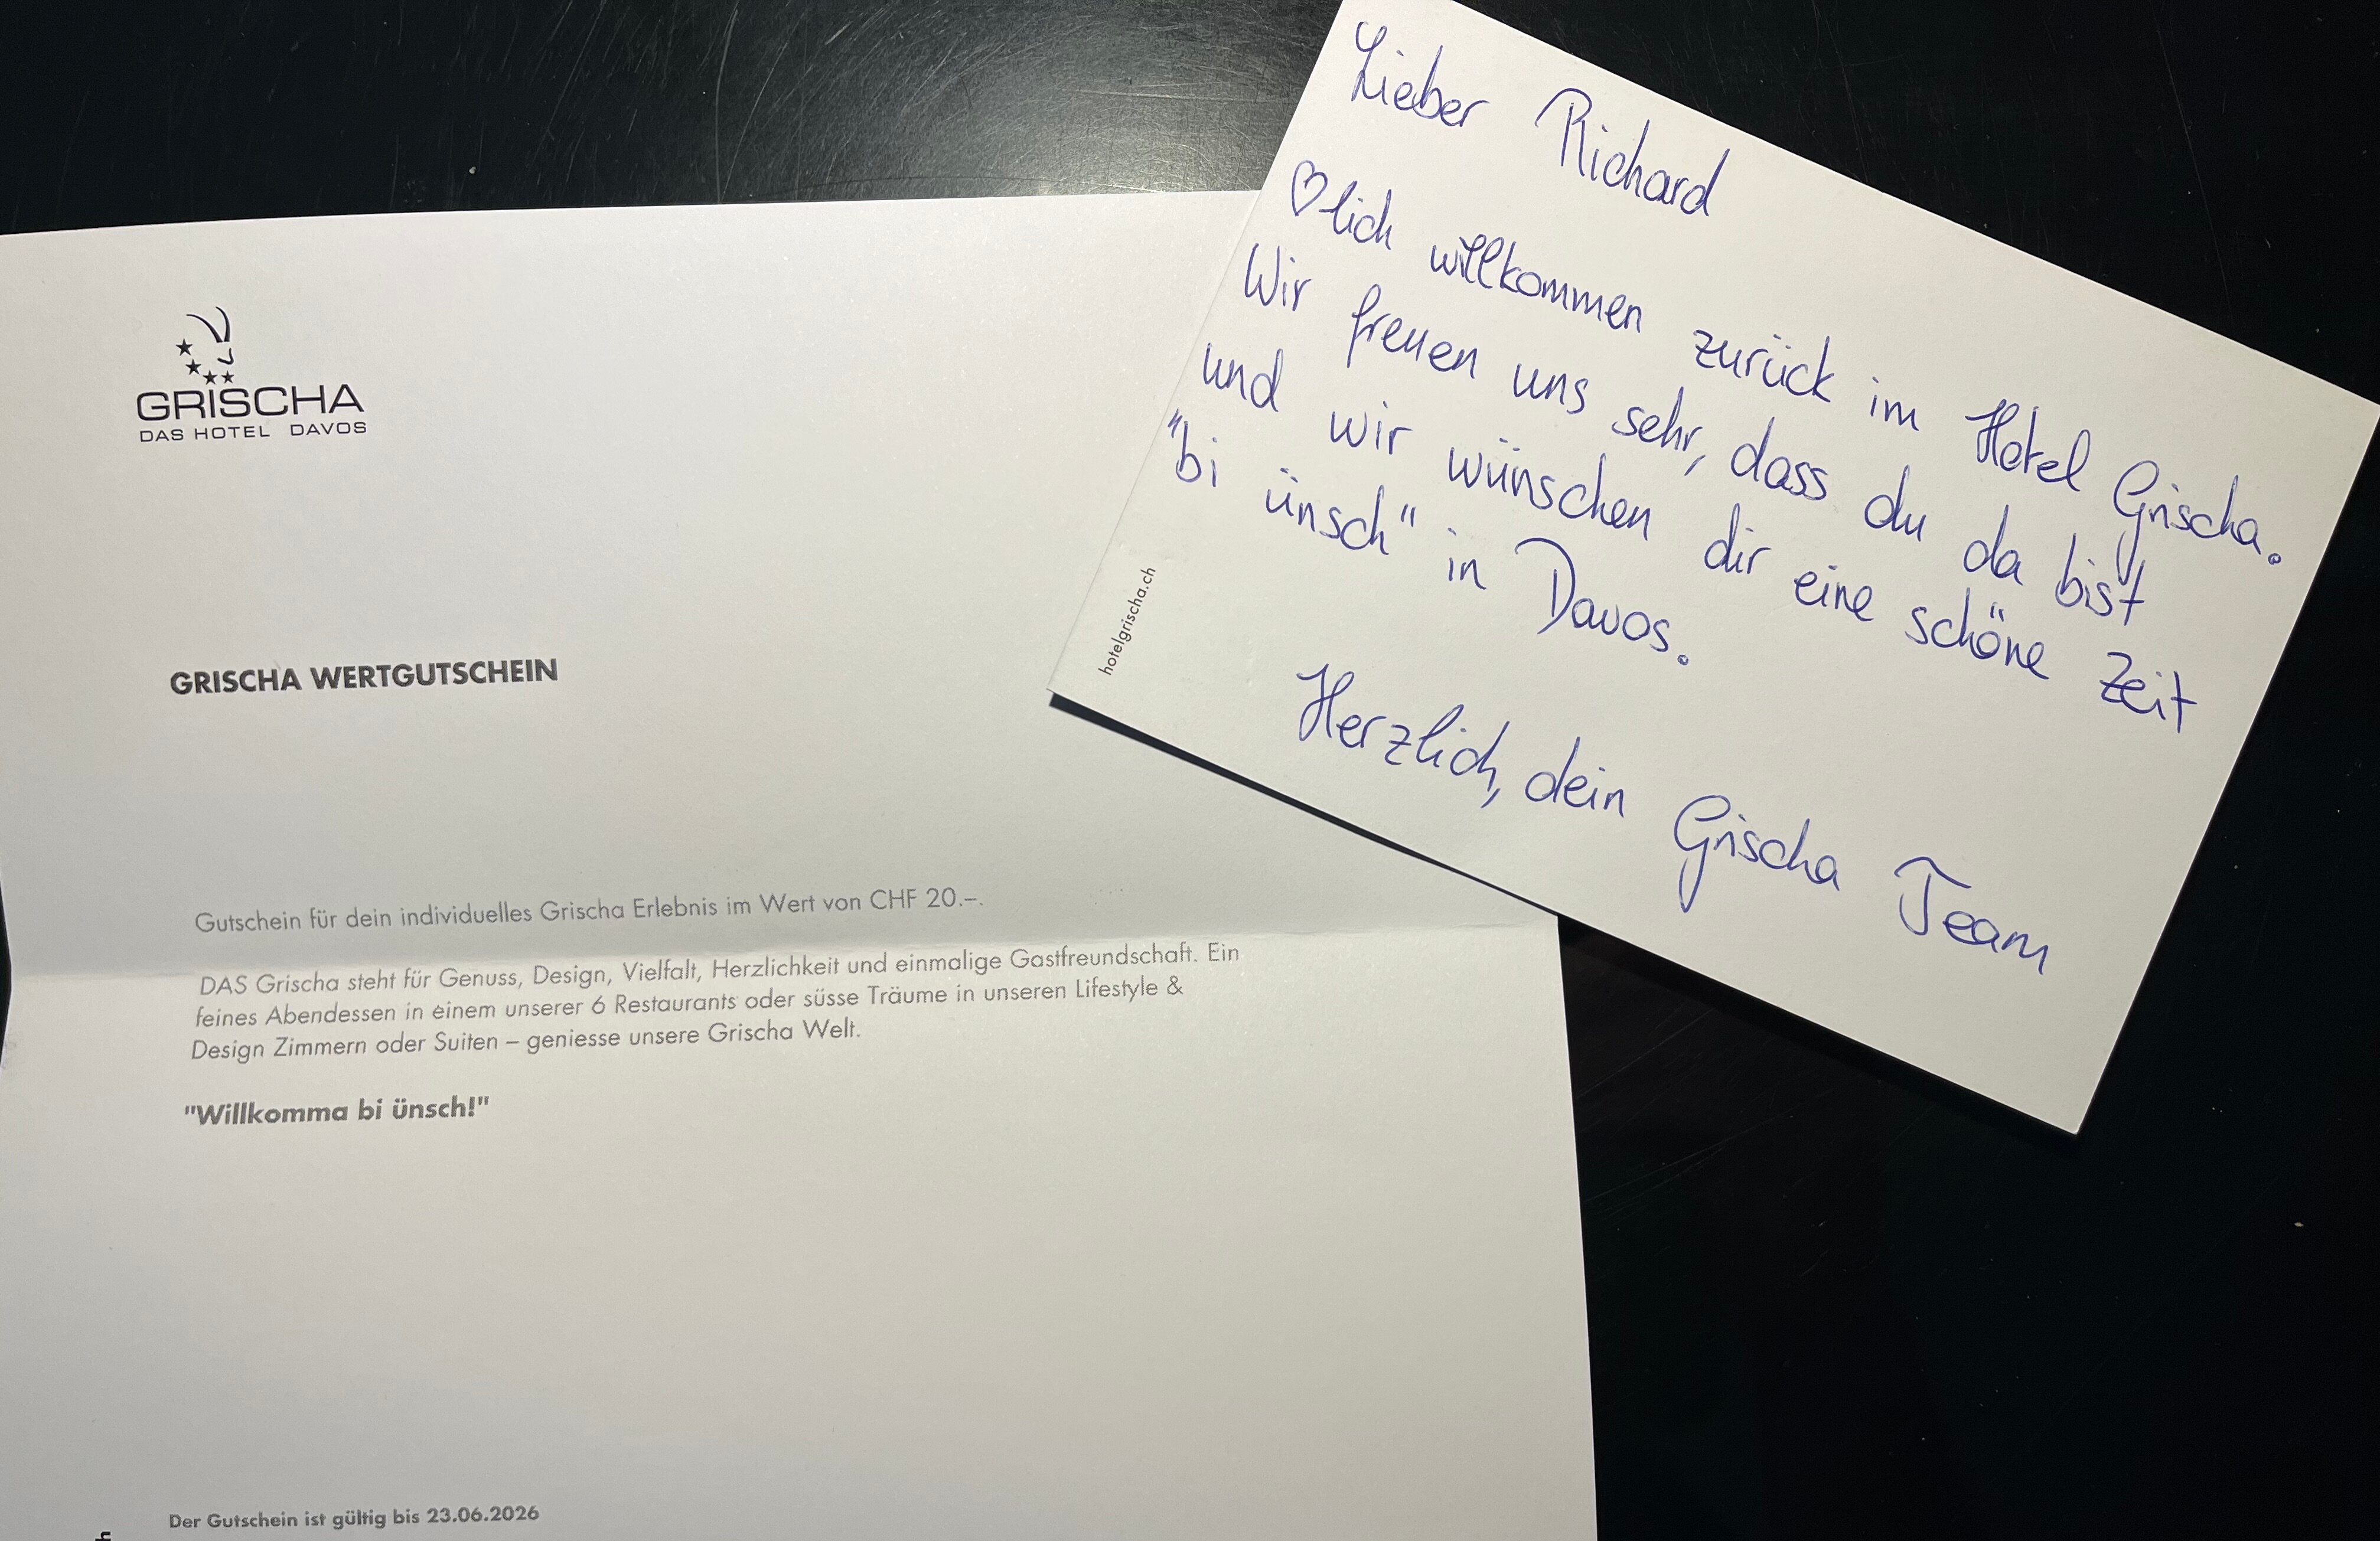 GRISCHA
DAS HOTEL DAVOS
GRISCHA WERTGUTSCHEIN
Gutschein für dein individuelles Grischa Erlebnis im Wert von CHF 20.–.
DAS Grischa steht für Genuss, Design, Vielfalt, Herzlichkeit und einmalige Gastfreundschaft. Ein
feines Abendessen in einem unserer 6 Restaurants oder süsse Träume in unseren Lifestyle &
Design Zimmern oder Suiten – geniesse unsere Grischa Welt.
"Willkomma bi ünsch!"
Der Gutschein ist gültig bis 23.06.2026
Lieber Richard
♡lich willkommen zurück im Hotel Grischa.
Wir freuen uns sehr, dass du da bist
und wir wünschen dir eine schöne Zeit
"bi ünsch" in Davos.
Herzlich, dein Grischa Team
hotelgrischa.ch